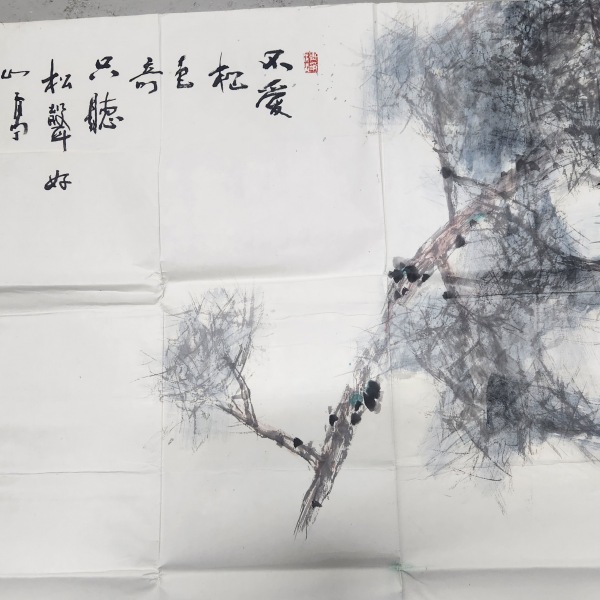 不愛
松
色
奇
只聽
松聲 好
山